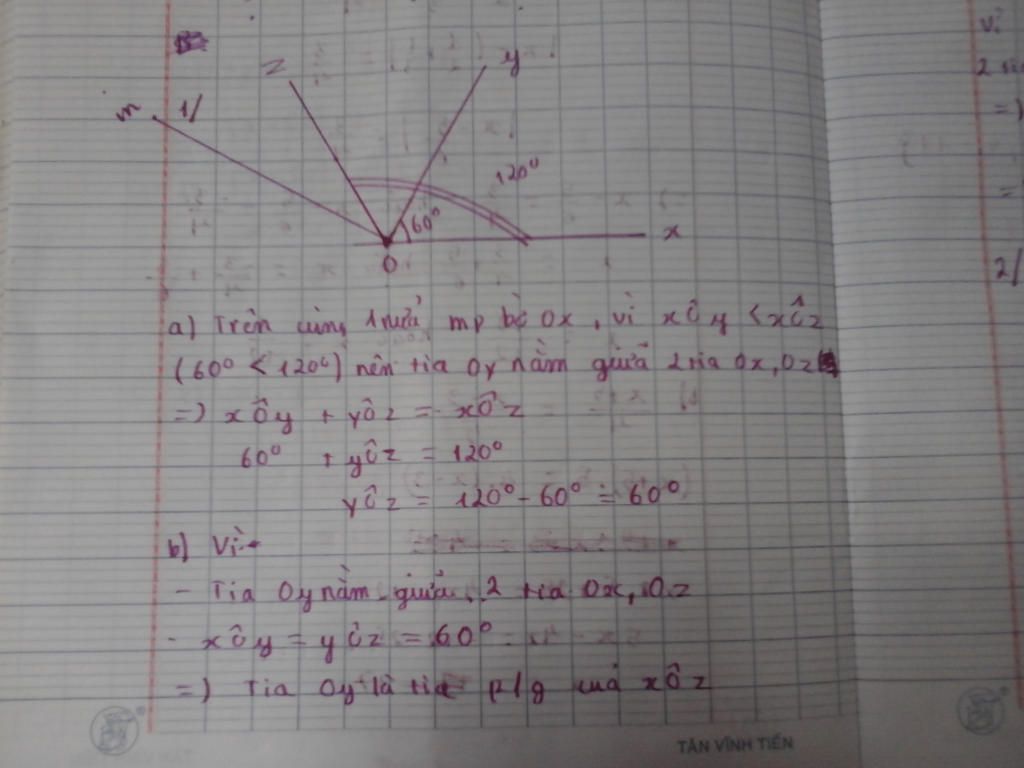 z
y
m
1/
120°
60°
x
O
a) Trên cùng 1 nửa mp bờ Ox, vì xÔy < xÔz
(60° < 120°) nên tia Oy nằm giữa 2 tia Ox, Oz
=) xÔy + yÔz = xÔz
60° + yÔz = 120°
yÔz = 120° - 60° = 60°
b) Vì
- Tia Oy nằm giữa 2 tia Ox, Oz
- xÔy = yÔz = 60°
=) Tia Oy là tia p/g của xÔz
TÂN VĨNH TIẾN
Vì
=)
=
2/